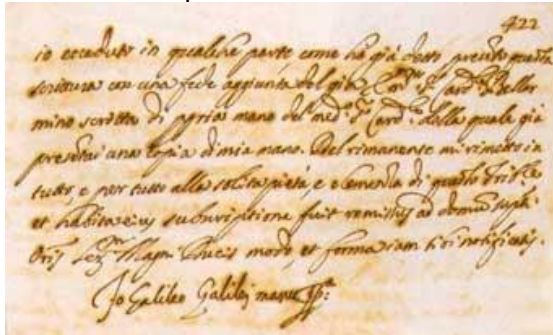 422
io ecceduto in qualche parte, come hò già detto presento questa
scrittura con una fede aggiunta del già Em.mo S.r Card.l Bellar
mino scritta di propria mano del med.o S.r Card.l, dalla quale già
presentai una copia di mia mano. Del rimanente mi rimetto in
tutto, e per tutto alla solita pietà, e clemenza di questo Trib.le
et habita eius subscriptione fuit remissus ad domum supti
Oris Ser.mi Magni Ducis modo, et forma iam sibi notificatis.
Io Galileo Galilei manu pp.a